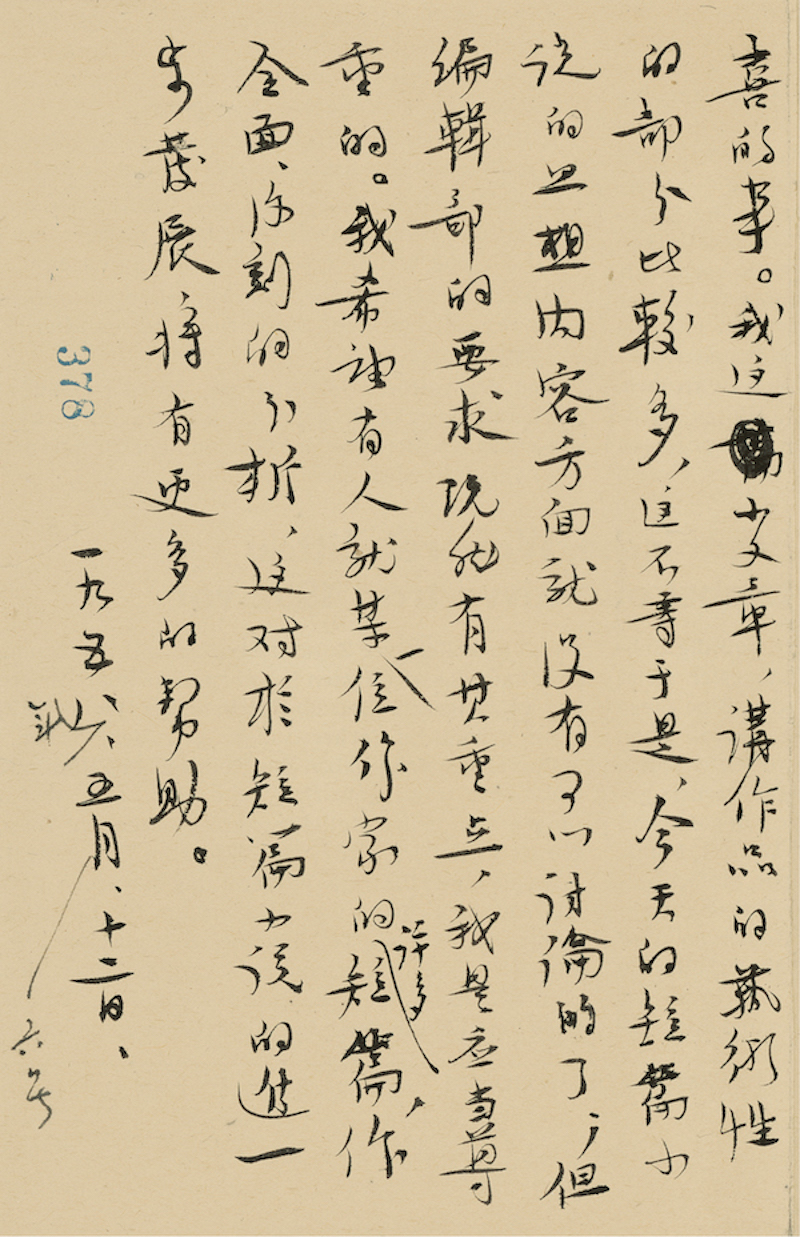 喜的事。我这小文章，講作品的藝術性
的部分比較多，这不等于是，今天的短篇小
说的思想内容方面就没有可以討論的了，但
編輯部的要求既然有其重点，我是应当尊
重的。我希望有人就某一位作家的许多短篇，作
全面、深刻的分析，这对於短篇小说的進一
步發展將有更多的帮助。
一九五八年、五月、十二日、
六号
378